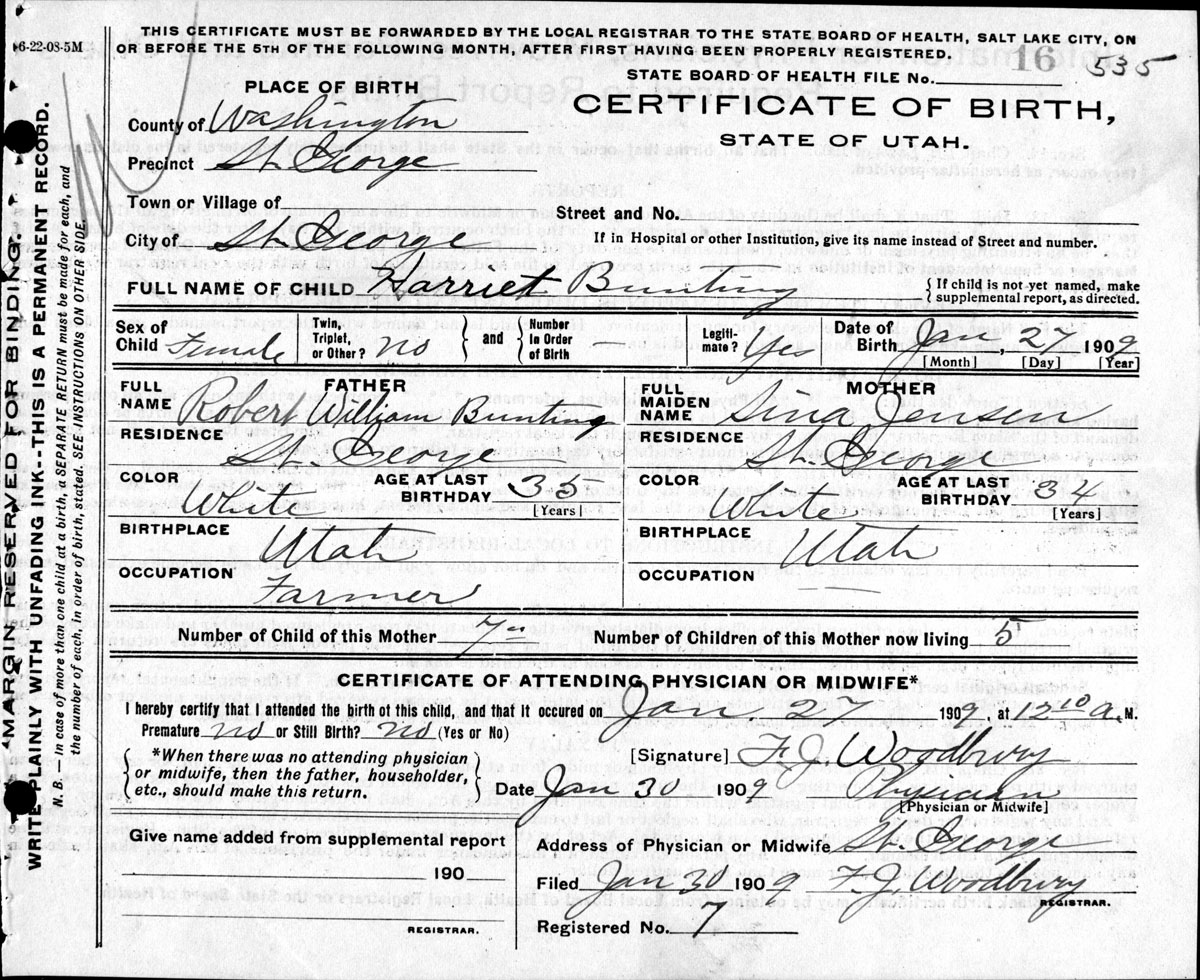 6-22-08-5M
THIS CERTIFICATE MUST BE FORWARDED BY THE LOCAL REGISTRAR TO THE STATE BOARD OF HEALTH, SALT LAKE CITY, ON
OR BEFORE THE 5TH OF THE FOLLOWING MONTH, AFTER FIRST HAVING BEEN PROPERLY REGISTERED.
16 535
STATE BOARD OF HEALTH FILE No.
PLACE OF BIRTH
CERTIFICATE OF BIRTH,
STATE OF UTAH.
County of Washington
Precinct St. George
Town or Village of
Street and No.
City of St. George
If in Hospital or other Institution, give its name instead of Street and number.
FULL NAME OF CHILD Harriet Bunting
{ If child is not yet named, make
supplemental report, as directed.
Sex of Child Female
Twin, Triplet, or Other? no } and { Number in Order of Birth
Legiti-mate? Yes
Date of Birth Ja , 27 1909
[Month] [Day] [Year]
FATHER
FULL NAME Robert William Bunting
RESIDENCE St. George
COLOR White
AGE AT LAST BIRTHDAY 35 [Years]
BIRTHPLACE Utah
OCCUPATION Farmer
MOTHER
FULL MAIDEN NAME Sina Jensen
RESIDENCE St. George
COLOR White
AGE AT LAST BIRTHDAY 34 [Years]
BIRTHPLACE Utah
OCCUPATION
Number of Child of this Mother 7
Number of Children of this Mother now living 5
CERTIFICATE OF ATTENDING PHYSICIAN OR MIDWIFE*
I hereby certify that I attended the birth of this child, and that it occured on Jan. 27 1909, at 12 10 a. M.
Premature no or Still Birth? no (Yes or No)
*When there was no attending physician
or midwife, then the father, householder,
etc., should make this return.
[Signature] F. J. Woodbury
Date Jan 30 1909 Physician
[Physician or Midwife]
Give name added from supplemental report
190
REGISTRAR.
Address of Physician or Midwife St. George
Filed Jan 30 1909 F. J. Woodbury
REGISTRAR.
Registered No. 7
MARGIN RESERVED FOR BINDING.
WRITE PLAINLY WITH UNFADING INK--THIS IS A PERMANENT RECORD.
N. B.—In case of more than one child at a birth, a SEPARATE RETURN must be made for each, and
the number of each, in order of birth, stated. SEE INSTRUCTIONS ON OTHER SIDE.